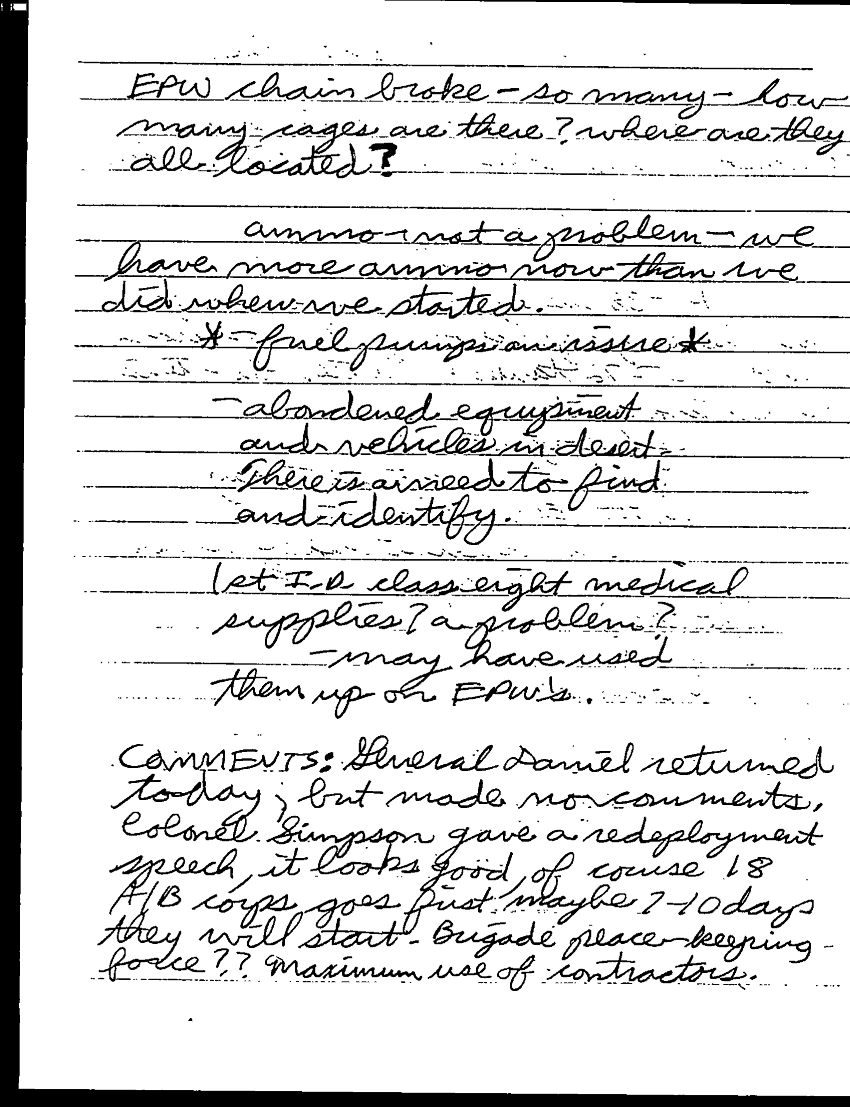 EPW chain broke - so many - how
many cages are there? where are they
all located?
ammo - not a problem - we
have more ammo now than we
did when we started.
* - fuel pumps an issue *
- abondened equypment
and vehicles in desert.
There is a need to find
and identify.
1st I.D. class eight medical
supplies? a problem?
- may have used
them up on EPW's.
COMMENTS: General Daniel returned
today, but made no comments.
Colonel Simpson gave a redeployment
speech, it looks good, of couse 18
A/B corps goes first maybe 7-10 days
they will start. Brigade peace-keeping
force?? Maximum use of contractors.